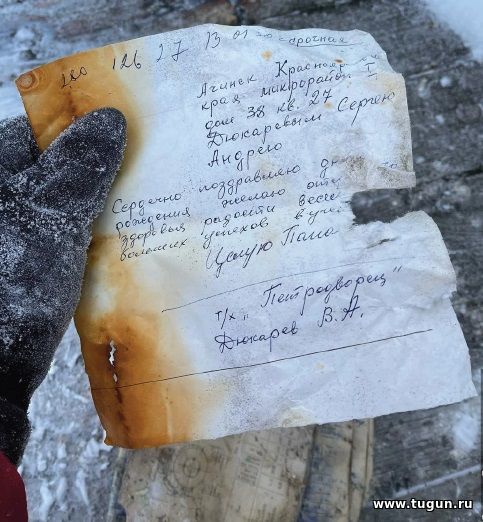 180 126 27 13 01 30 срочная
Ачинск Красноя
края микрорайон I
дом 38 кв. 27
Дюкаревым Сергею
Андрею
Сердечно поздравляю дн
рождения желаю от
здоровья радости весе
больших успехов в уче
Целую Папа
т/х "Петродворец"
Дюкарев В.А.
www.tugun.ru